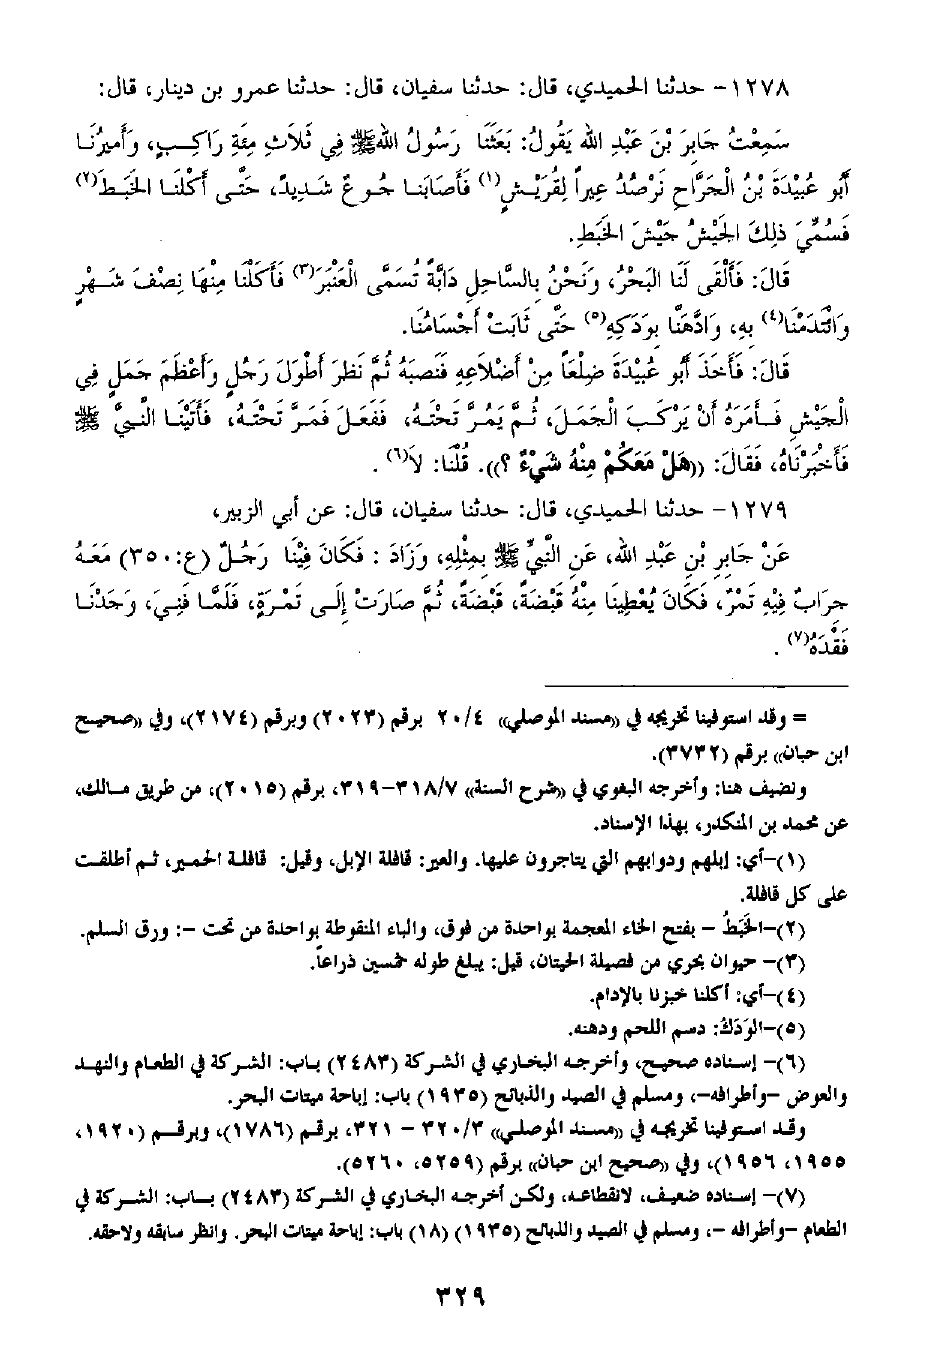 ١٢٧٨- حدثنا الحميدي، قال: حدثنا سفيان، قال: حدثنا عمرو بن دينار، قال:
سَمِعْتُ جَابِرَ بْنَ عَبْدِ الله يَقُولُ: بَعَثَنَا رَسُولُ اللهِ ﷺ فِي ثَلاَثِ مِئَةِ رَاكِبٍ، وَأَمِيرُنَا
أَبُو عُبَيْدَةَ بْنُ الْجَرَّاحِ نَرْصُدُ عِيراً لِقُرَيْشٍ(١) فَأَصَابَنَا جُوعٌ شَدِيدٌ، حَتَّى أَكَلْنَا الخَبَطَ(٢)
فَسُمِّيَ ذلِكَ الجَيْشُ جَيْشَ الخَبَطِ.
قَالَ: فَأَلْقَى لَنَا البَحْرُ، وَنَحْنُ بِالسَّاحِلِ دَابَّةً تُسَمَّى الْعَنْبَرَ(٣) فَأَكَلْنَا مِنْهَا نِصْفَ شَهْرٍ
وَائْتَدَمْنَا(٤) بِهِ، وَادَّهَنَّا بِوَدَكِهِ(٥) حَتَّى ثَابَتْ أَجْسَامُنَا.
قَالَ: فَأَخَذَ أَبُو عُبَيْدَةَ ضِلْعَاً مِنْ أَضْلاَعِهِ فَنَصَبَهُ ثُمَّ نَظَرَ أَطْوَلَ رَجُلٍ وَأَعْظَمَ جَمَلٍ فِي
الْجَيْشِ فَأَمَرَهُ أَنْ يَرْكَبَ الْجَمَلَ، ثُمَّ يَمُرَّ تَحْتَهُ، فَفَعَلَ فَمَرَّ تَحْتَهُ، فَأَتَيْنَا النَّبِيَّ ﷺ
فَأَخْبَرْنَاهُ، فَقَالَ: ((هَلْ مَعَكُمْ مِنْهُ شَيْءٌ ؟)). قُلْنَا: لاَ(٦) .
١٢٧٩- حدثنا الحميدي، قال: حدثنا سفيان، قال: عن أبي الزبير،
عَنْ جَابِرِ بْنِ عَبْدِ الله، عَنِ النَّبِيِّ ﷺ بِمِثْلِهِ، وَزَادَ : فَكَانَ فِيْنَا رَجُلٌ (ع:٣٥٠) مَعَهُ
جِرَابٌ فِيْهِ تَمْرٌ، فَكَانَ يُعْطِينَا مِنْهُ قَبْضَةً، قَبْضَةً، ثُمَّ صَارَتْ إِلَى تَمْرَةٍ، فَلَمَّا فَنِيَ، وَجَدْنَا
فَقْدَهُ(٧) .
= وقد استوفينا تخريجه في ((مسند الموصلي)) ٢٠/٤ برقم (٢٠٢٣) وبرقم (٢١٧٤)، وفي ((صحيح
ابن حبان)) برقم (٣٧٣٢).
ونضيف هنا: وأخرجه البغوي في ((شرح السنة)) ٣١٨/٧-٣١٩، برقم (٢٠١٥)، من طريق مالك،
عن محمد بن المنكدر، بهذا الإسناد.
(١)-أي: إبلهم ودوابهم التي يتاجرون عليها. والعير: قافلة الإبل، وقيل: قافلة الحمير، ثم أطلقت
على كل قافلة.
(٢)-الخَبَطُ - بفتح الخاء المعجمة بواحدة من فوق، والباء المنقوطة بواحدة من تحت -: ورق السلم.
(٣)- حيوان بحري من فصيلة الحيتان، قيل: يبلغ طوله خمسين ذراعاً.
(٤)-أي: أكلنا خبزنا بالإدام.
(٥)-الوَدَكُ: دسم اللحم ودهنه.
(٦)- إسناده صحيح، وأخرجه البخاري في الشركة (٢٤٨٣) باب: الشركة في الطعام والنهد
والعوض -وأطرافه-، ومسلم في الصيد والذبائح (١٩٣٥) باب: إباحة ميتات البحر.
وقد استوفينا تخريجه في ((مسند الموصلي)) ٣٢٠/٣ - ٣٢١، برقم (١٧٨٦)، وبرقم (١٩٢٠،
١٩٥٥، ١٩٥٦)، وفي ((صحيح ابن حبان)) برقم (٥٢٥٩، ٥٢٦٠).
(٧)- إسناده ضعيف، لانقطاعه، ولكن أخرجه البخاري في الشركة (٢٤٨٣) باب: الشركة في
الطعام -وأطرافه -، ومسلم في الصيد والذبائح (١٩٣٥) (١٨) باب: إباحة ميتات البحر. وانظر سابقه ولاحقه.
٣٢٩